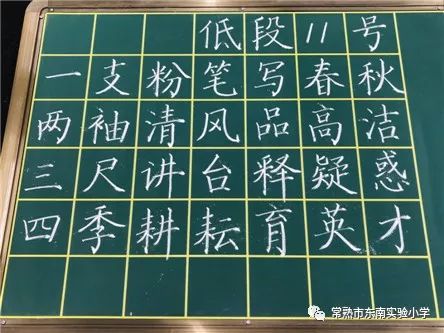 低段11号
一支粉笔写春秋
两袖清风品高洁
三尺讲台释疑惑
四季耕耘育英才
常熟市东南实验小学